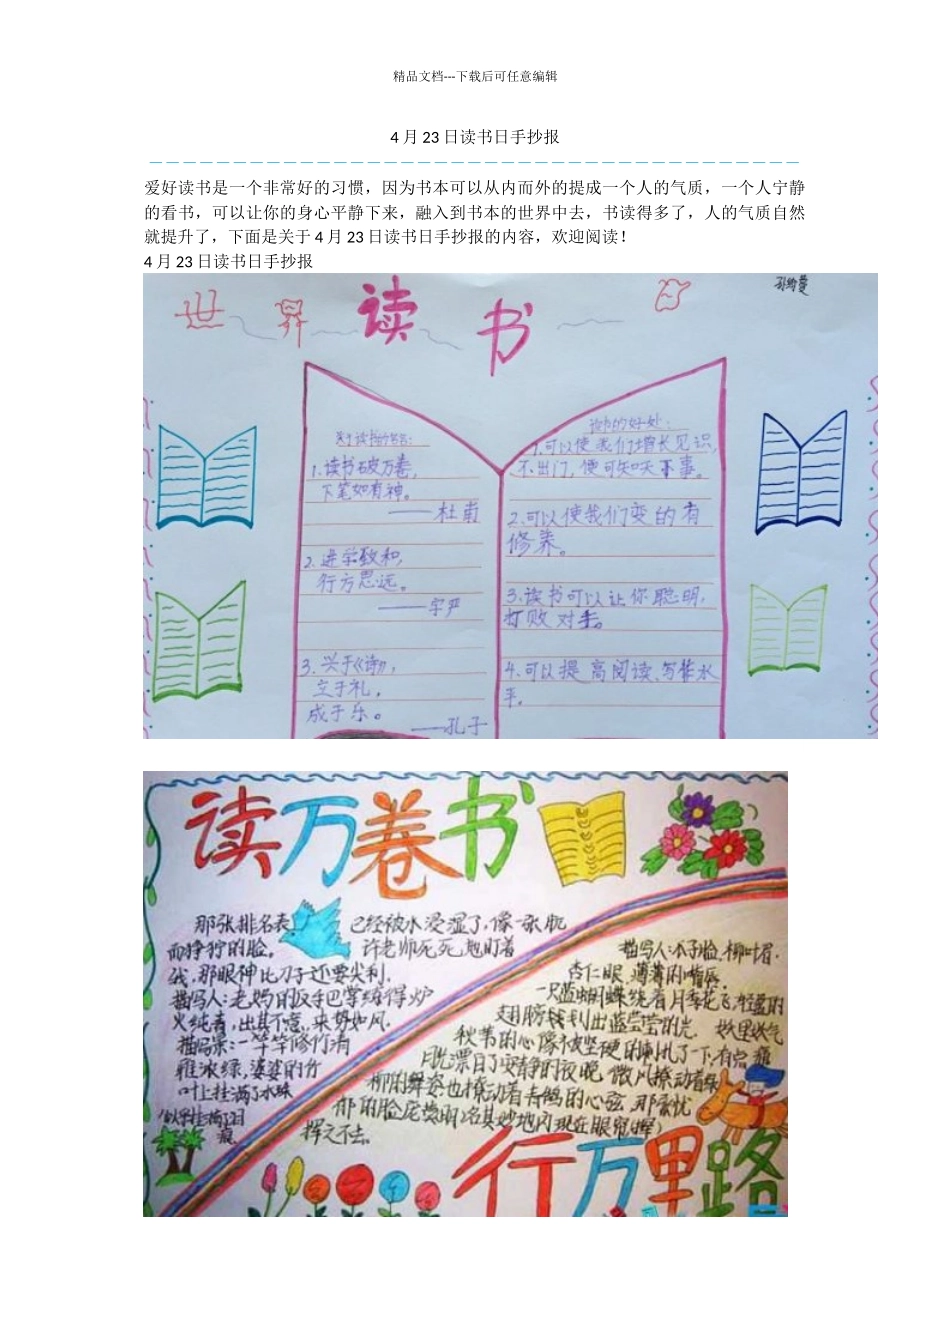 精品文档---下载后可任意编辑
4 月 23 日读书日手抄报
爱好读书是一个非常好的习惯，因为书本可以从内而外的提成一个人的气质，一个人宁静
的看书，可以让你的身心平静下来，融入到书本的世界中去，书读得多了，人的气质自然
就提升了，下面是关于 4 月 23 日读书日手抄报的内容，欢迎阅读！
4 月 23 日读书日手抄报
世界读书日
1.读书破万卷，
下笔如有神。
——杜甫
2.进学致和，
行方思远。
——字严
3.兴于《诗》，
立于礼，
成于乐。
——孔子
读书的好处：
1.可以使我们增长见识，
不出门，便可知天下事。
2.可以使我们变的有
修养。
3.读书可以让你聪明，
打败对手。
4.可以提高阅读、写作水
平。
读万卷书
那张排名表已经被水浸湿了，像一张肮
而狰狞的脸。许老师死死地盯着
我，那眼神比刀子还要尖利．
描写人：老妈的反手巴掌练得炉
火纯青，出其不意，来势如风．
描写景：一竿竿修竹清
雅浓绿，婆婆的竹
叶上挂满了水珠
似乎挂满了泪
痕
描写人：瓜子脸．柳叶眉．
杏仁眼．薄薄的嘴唇
一只蓝蝴蝶绕着月季花飞，轻盈的
翅膀镂划出蓝莹莹的光．
秋苇的心像被坚硬的喇扎了一下，有点
挥之不去．
行万里路